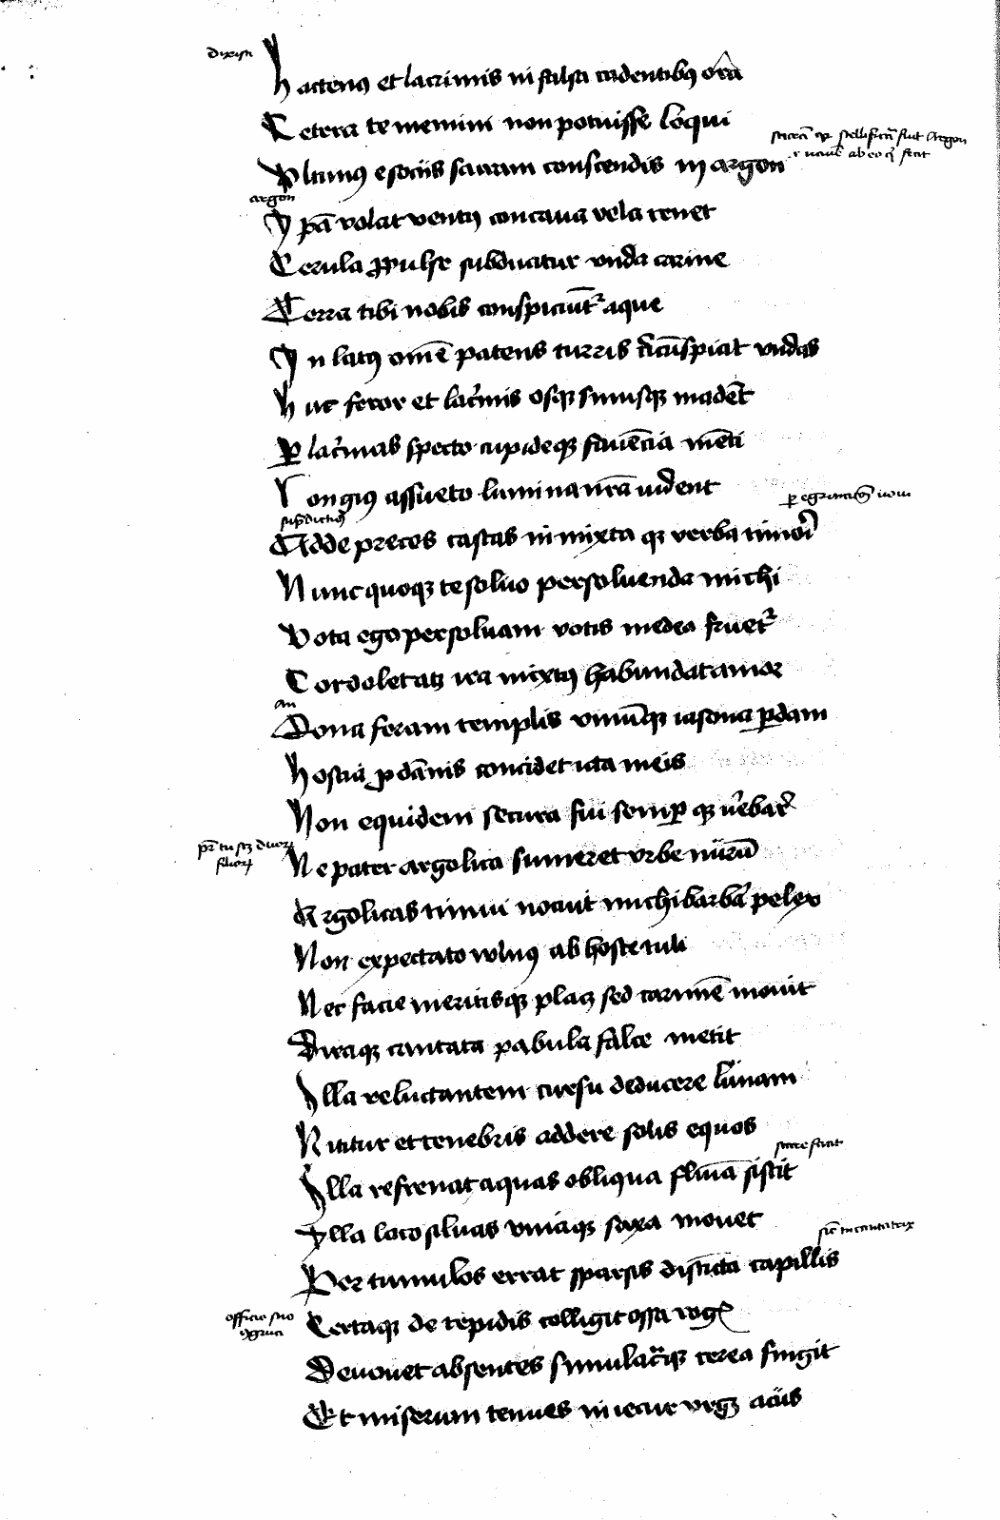 dixisti
Hactenus et lacrimis in falsa cadentibus ora
Cetera te memini non potuisse loqui
Ultimus e sociis sacram conscendis in argon
argon
Ipa volat ventus concava vela tenet
Cerula propulse subducitur unda carine
Terra tibi nobis conspiciuntur aque
In latus omne patens turris circumspicit undas
Huc feror et lacrimis osque sinusque madent
Per lacrimas specto cupideque faventia menti
Longius assueto lumina nostra vident
Adde preces castas inmixtaque verba timori
Nunc quoque te solvo persolvenda michi
Vota ego persolvam votis medea fruetur
Cor dolet atque ira mixtus habundat amor
an
Dona feram templis vivumque iasona perdam
Hostia pro damnis concidet icta meis
Non equidem secura fui semperque verebar
Ne pater argolica sumeret urbe nurum
Argolicas timui nocuit michi barbara pelex
Non expectato vulnus ab hoste tuli
Nec facie meritisque placet sed carmine movit
Diraque cantata pabula falce metit
Illa reluctantem cursu deducere lunam
Nititur et tenebris addere solis equos
stare facit
Illa refrenat aquas obliqua flumina sistit
Illa loco silvas vivaque saxa movet
Per tumulos errat sparsis distincta capillis
officio suo
Certaque de tepidis colligit ossa rogis
Devovet absentes simulacraque cerea fingit
Et miserum tenues in iecur urget acus